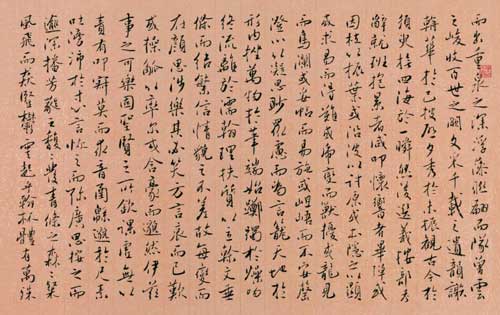 而出重泉之深浮藻聯翩而隊曾雲
之峻收百世之闕文采千載之遺韻謝
朝華於已披啟夕秀於未振觀古今於
須臾撫四海於一瞬然後選義按部考
辭就班抱景者咸叩懷響者畢彈或
因枝以振葉或沿波以討原或本隱之以顯
或求易而得難或虎變而獸擾或龍見
而鳥瀾或妥帖而易施或岨峿而不安罄
澄心以凝思眇眾慮而為言籠天地於
形內挫萬物於筆端始躑躅於燥吻
終流離於濡翰理扶質以立幹文垂
條而結繁信情貌之不差故每變而
在顏思涉樂其必笑方言哀而已歎
或操觚以率爾或含毫而邈然伊茲
事之可樂固聖賢之所欽課虛無以
責有叩寂寞而求音函緜邈於尺素
吐滂沛乎寸心言恢之而彌廣思按之而
逾深播芳蕤之馥馥發青條之森森粲
風飛而猋豎鬱雲起乎翰林體有萬殊